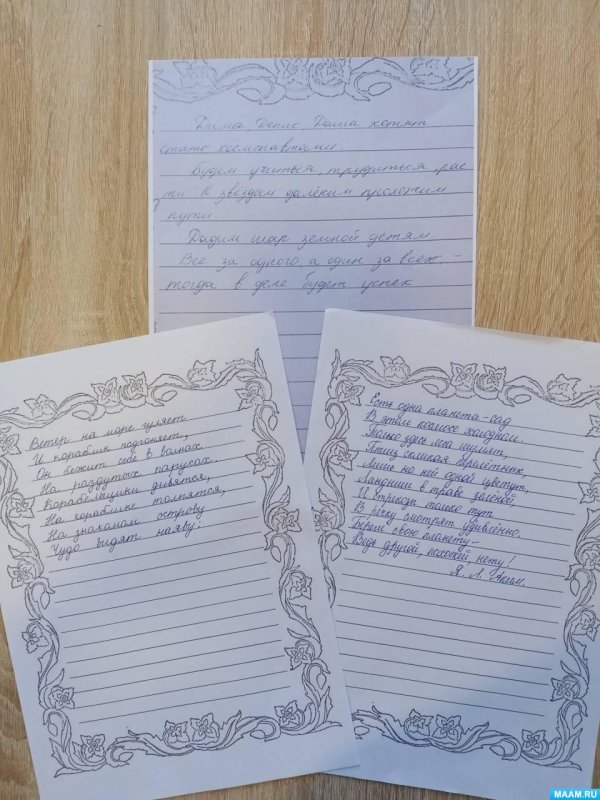 Дима, Денис, Даша хотят
стать космонавтами.
Будем учиться, трудиться, рас
ти К звездам далёким проложим
пути.
Дадим шар земной детям
Все за одного, а один за всех, -
тогда в деле будет успех
Ветер на море гуляет
И кораблик подгоняет,
Он бежит себе в волнах
На раздутых парусах.
Корабельщики дивятся,
На кораблике толпятся,
На знакомом острову
Чудо видят наяву:
Есть одна планета-сад
В этом космосе холодном.
Только здесь леса шумят,
Птиц скликая перелётных,
Лишь на ней одной цветут,
Ландыши в траве зелёной,
И стрекозы только тут
В речку смотрят удивлённо.
Береги свою планету-
Ведь другой, похожей, нету!
Я. Л. Аким.
MAAM.RU